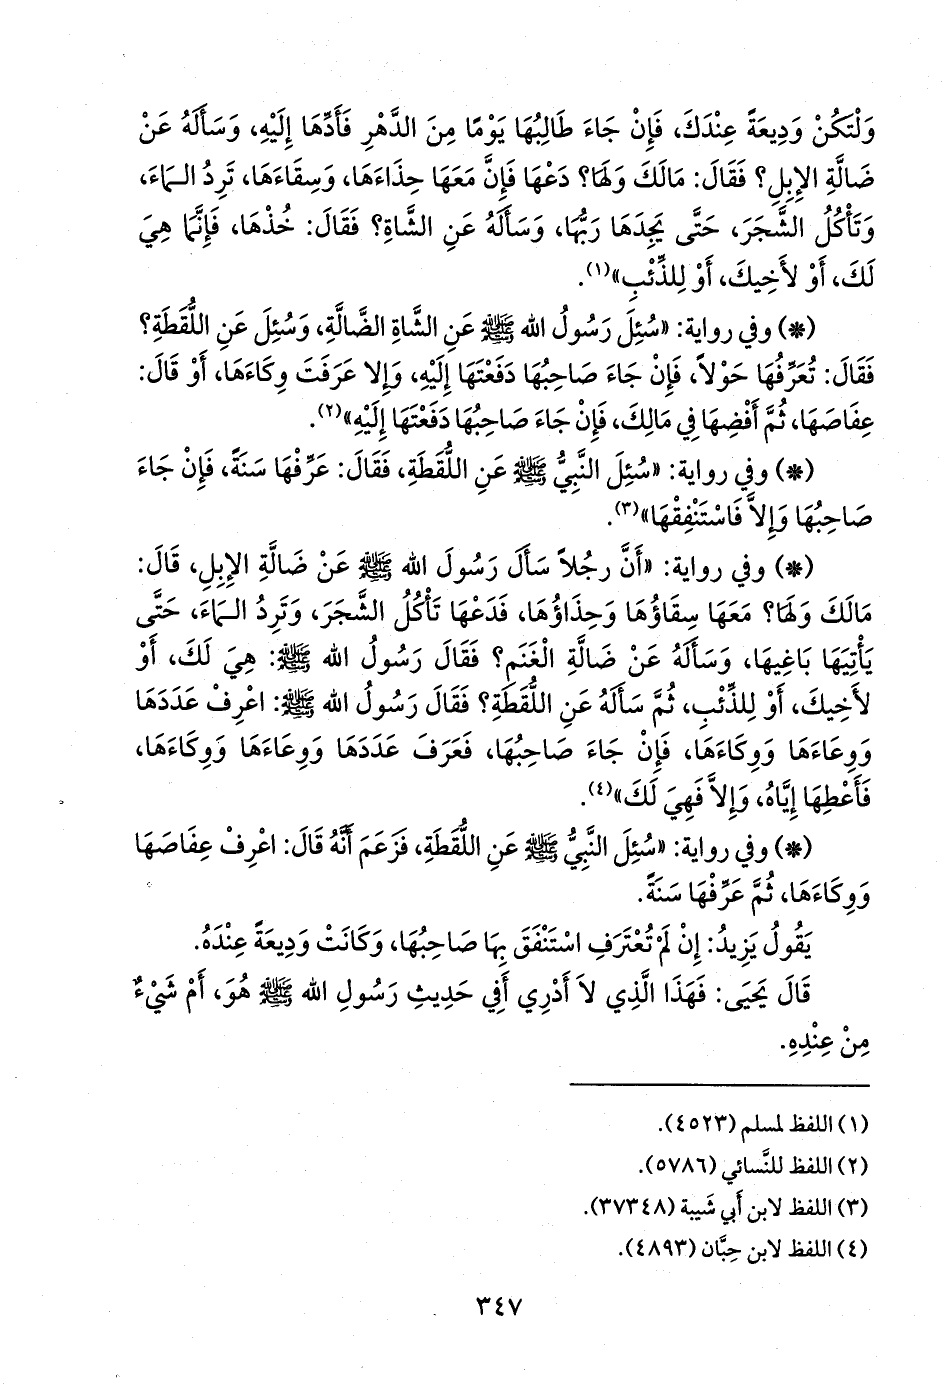 وَلْتَكُنْ وَدِيعَةً عِنْدَكَ، فَإِنْ جَاءَ طَالِبُهَا يَوْمًا مِنَ الدَّهْرِ فَأَدِّهَا إِلَيْهِ، وَسَأَلَهُ عَنْ
ضَالَّةِ الإِبِلِ؟ فَقَالَ: مَالَكَ وَلَهَا؟ دَعْهَا فَإِنَّ مَعَهَا حِذَاءَهَا، وَسِقَاءَهَا، تَرِدُ الـمَاءَ،
وَتَأْكُلُ الشَّجَرَ، حَتَّى يَجِدَهَا رَبُّهَا، وَسَأَلَهُ عَنِ الشَّاةِ؟ فَقَالَ: خُذْهَا، فَإِنَّمَا هِيَ
لَكَ، أَوْ لأَخِيكَ، أَوْ لِلذِّئْبِ»(١).
(*) وفي رواية: «سُئِلَ رَسُولُ الله ﷺ عَنِ الشَّاةِ الضَّالَّةِ، وَسُئِلَ عَنِ اللُّقَطَةِ؟
فَقَالَ: تُعَرِّفُهَا حَوْلاً، فَإِنْ جَاءَ صَاحِبُهَا دَفَعْتَهَا إِلَيْهِ، وَإِلا عَرَفْتَ وِكَاءَهَا، أَوْ قَالَ:
عِفَاصَهَا، ثُمَّ أَفْضِهَا فِي مَالِكَ، فَإِنْ جَاءَ صَاحِبُهَا دَفَعْتَهَا إِلَيْهِ»(٢).
(*) وفي رواية: «سُئِلَ النَّبِيُّ ﷺ عَنِ اللُّقَطَةِ، فَقَالَ: عَرِّفْهَا سَنَةً، فَإِنْ جَاءَ
صَاحِبُهَا وَإِلاَّ فَاسْتَنْفِقْهَا»(٣).
(*) وفي رواية: «أَنَّ رَجُلاً سَأَلَ رَسُولَ الله ﷺ عَنْ ضَالَّةِ الإِبِلِ، قَالَ:
مَالَكَ وَلَهَا؟ مَعَهَا سِقَاؤُهَا وَحِذَاؤُهَا، فَدَعْهَا تَأْكُلُ الشَّجَرَ، وَتَرِدُ الـمَاءَ، حَتَّى
يَأْتِيَهَا بَاغِيهَا، وَسَأَلَهُ عَنْ ضَالَّةِ الْغَنَمِ؟ فَقَالَ رَسُولُ الله ﷺ: هِيَ لَكَ، أَوْ
لأَخِيكَ، أَوْ لِلذِّئْبِ، ثُمَّ سَأَلَهُ عَنِ اللُّقَطَةِ؟ فَقَالَ رَسُولُ الله ﷺ: اعْرِفْ عَدَدَهَا
وَوِعَاءَهَا وَوِكَاءَهَا، فَإِنْ جَاءَ صَاحِبُهَا، فَعَرَفَ عَدَدَهَا وَوِعَاءَهَا وَوِكَاءَهَا،
فَأَعْطِهَا إِيَّاهُ، وَإِلاَّ فَهِيَ لَكَ»(٤).
(*) وفي رواية: «سُئِلَ النَّبِيُّ ﷺ عَنِ اللُّقَطَةِ، فَزَعَمَ أَنَّهُ قَالَ: اعْرِفْ عِفَاصَهَا
وَوِكَاءَهَا، ثُمَّ عَرِّفْهَا سَنَةً.
يَقُولُ يَزِيدُ: إِنْ لَمْ تُعْتَرَفِ اسْتَنْفَقَ بِهَا صَاحِبُهَا، وَكَانَتْ وَدِيعَةً عِنْدَهُ.
قَالَ يَحْيَى: فَهَذَا الَّذِي لاَ أَدْرِي أَفِي حَدِيثِ رَسُولِ الله ﷺ هُوَ، أَمْ شَيْءٌ
مِنْ عِنْدِهِ.
(١) اللفظ لمسلم (٤٥٢٣).
(٢) اللفظ للنَّسائي (٥٧٨٦).
(٣) اللفظ لابن أَبي شَيبة (٣٧٣٤٨).
(٤) اللفظ لابن حِبَّان (٤٨٩٣).
٣٤٧